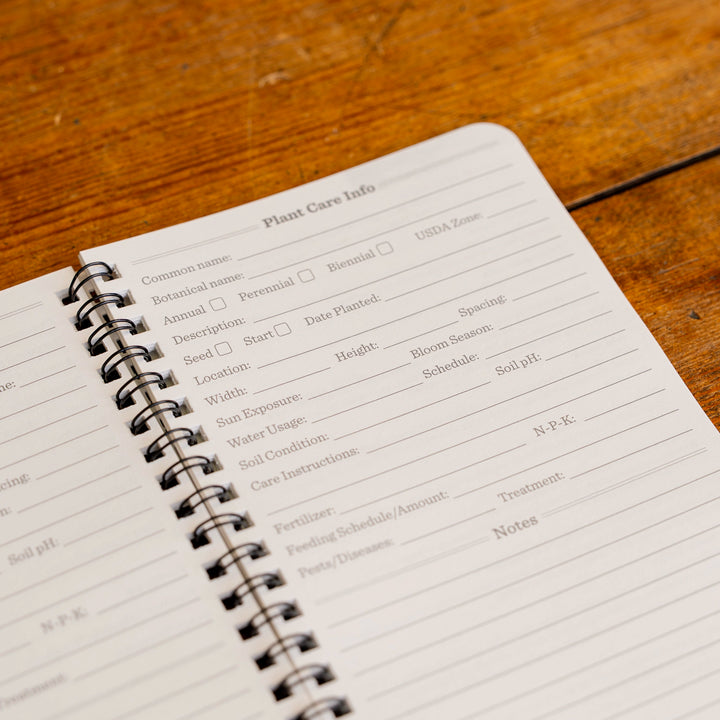 ne:
cing:
n:
Soil pH:
N-P-K:
Treatment:
Plant Care Info
Common name:
Botanical name:
Annual Perennial Biennial USDA Zone:
Description:
Seed Start Date Planted:
Location:
Width: Height: Spacing:
Sun Exposure: Bloom Season:
Water Usage: Schedule:
Soil Condition: Soil pH:
Care Instructions:
Fertilizer: N-P-K:
Feeding Schedule/Amount:
Pests/Diseases: Treatment:
Notes